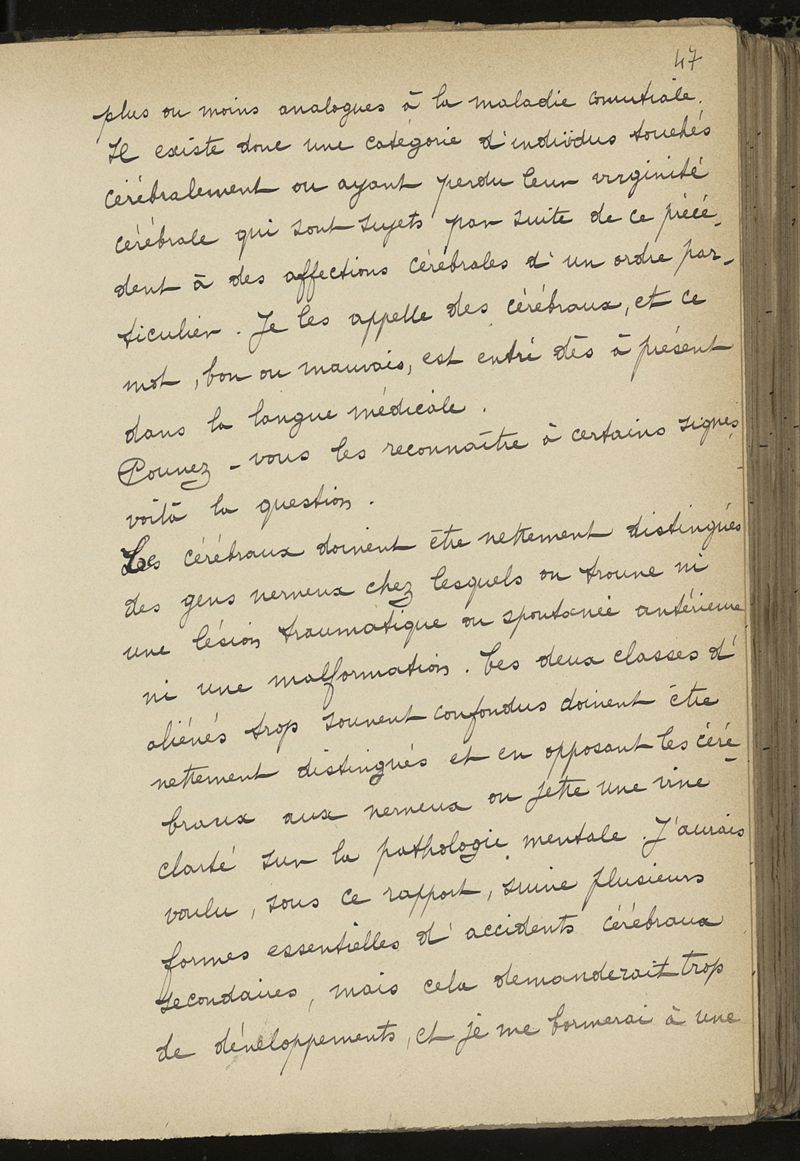 47
plus ou moins analogues à la maladie comitiale.
Il existe donc une catégorie d'individus touchés
cérébralement ou ayant perdu leur virginité
cérébrale qui sont sujets par suite de ce précé-
dent à des affections cérébrales d'un ordre par-
ticulier. Je les appelle des cérébraux, et ce
mot, bon ou mauvais, est entré dès à présent
dans la langue médicale.
Pouvez-vous les reconnaître à certains signes,
voilà la question.
Les cérébraux doivent être nettement distingués
des gens nerveux chez lesquels on trouve ni
une lésion traumatique ou spontanée antérieure
ni une malformation. Ces deux classes d'
aliénés trop souvent confondus doivent être
nettement distingués et en opposant les céré-
braux aux nerveux on jette une vive
clarté sur la pathologie mentale. J'aurais
voulu, sous ce rapport, suivre plusieurs
formes essentielles d'accidents cérébraux
secondaires, mais cela demanderait trop
de développements, et je me bornerai à une